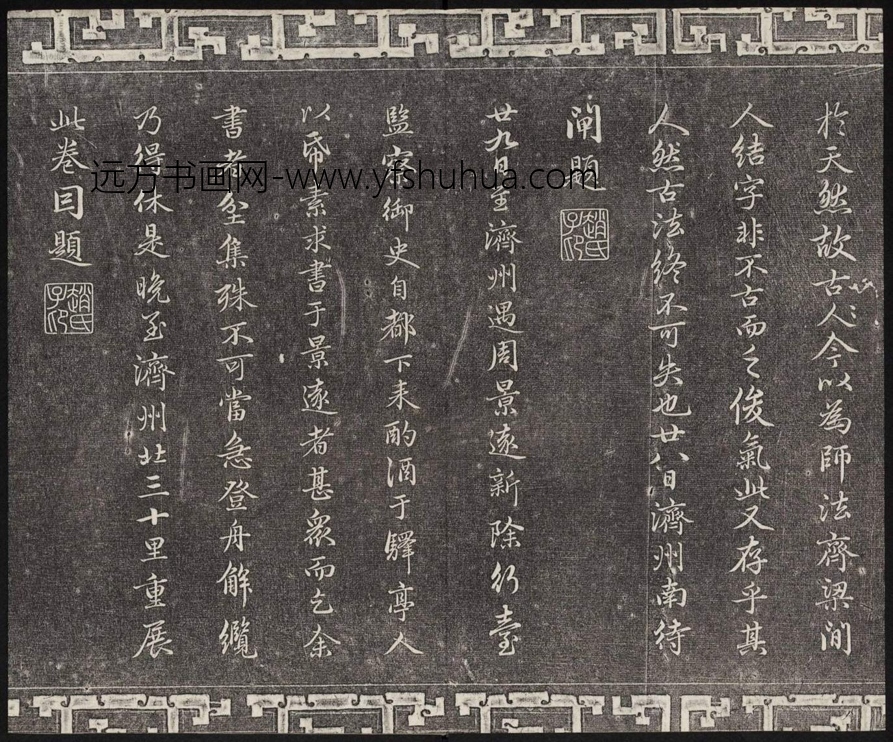 於天然故古人今以為師法齊梁間
人結字非不古而乏俊氣此又存乎其
人然古法終不可失也廿八日濟州南待
閘題
趙氏子昂
廿九日至濟州遇周景遠新除行臺
監察御史自都下来酌酒于驛亭人
以帋素求書于景遠者甚衆而乞余
書者坌集殊不可當急登舟解纜
乃得休是晚至濟州北三十里重展
此卷因題
趙氏子昂
远方书画网-www.yfshuhua.com